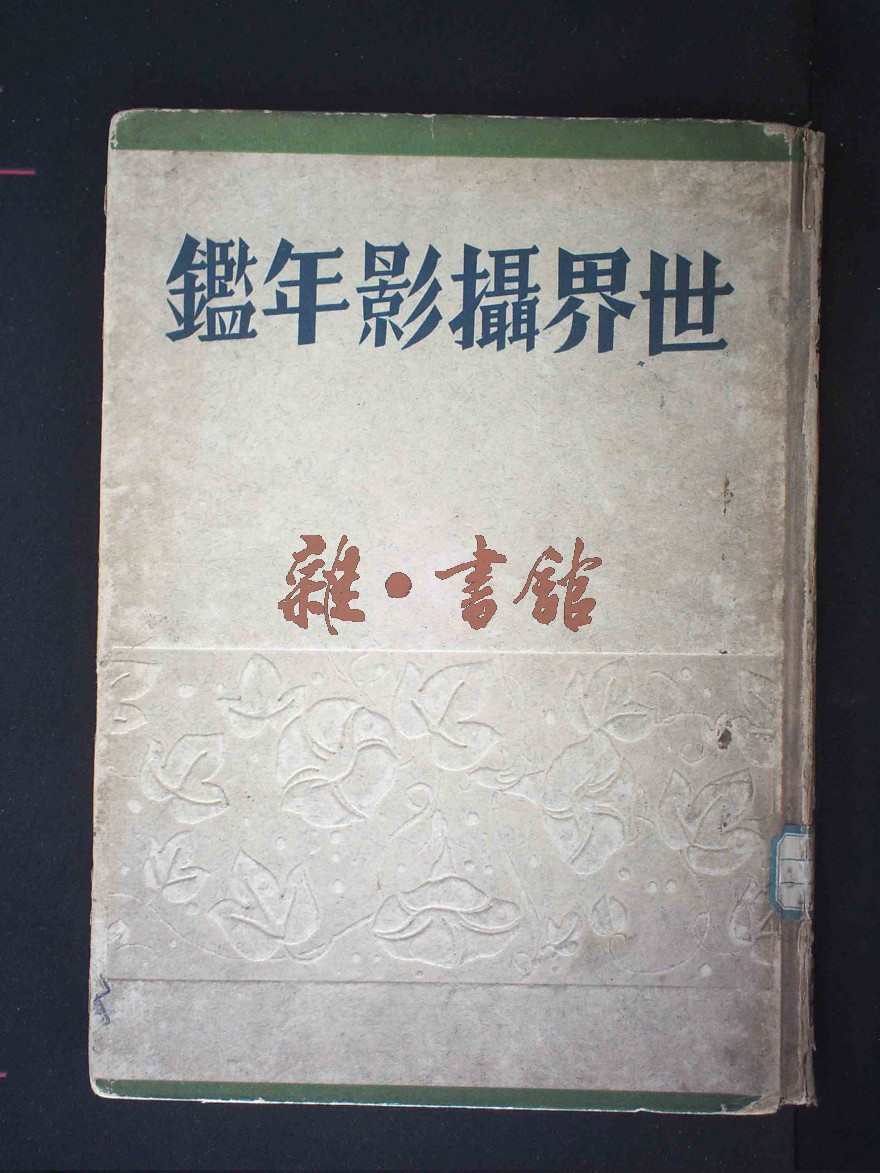 世界攝影年鑑
雜·書館